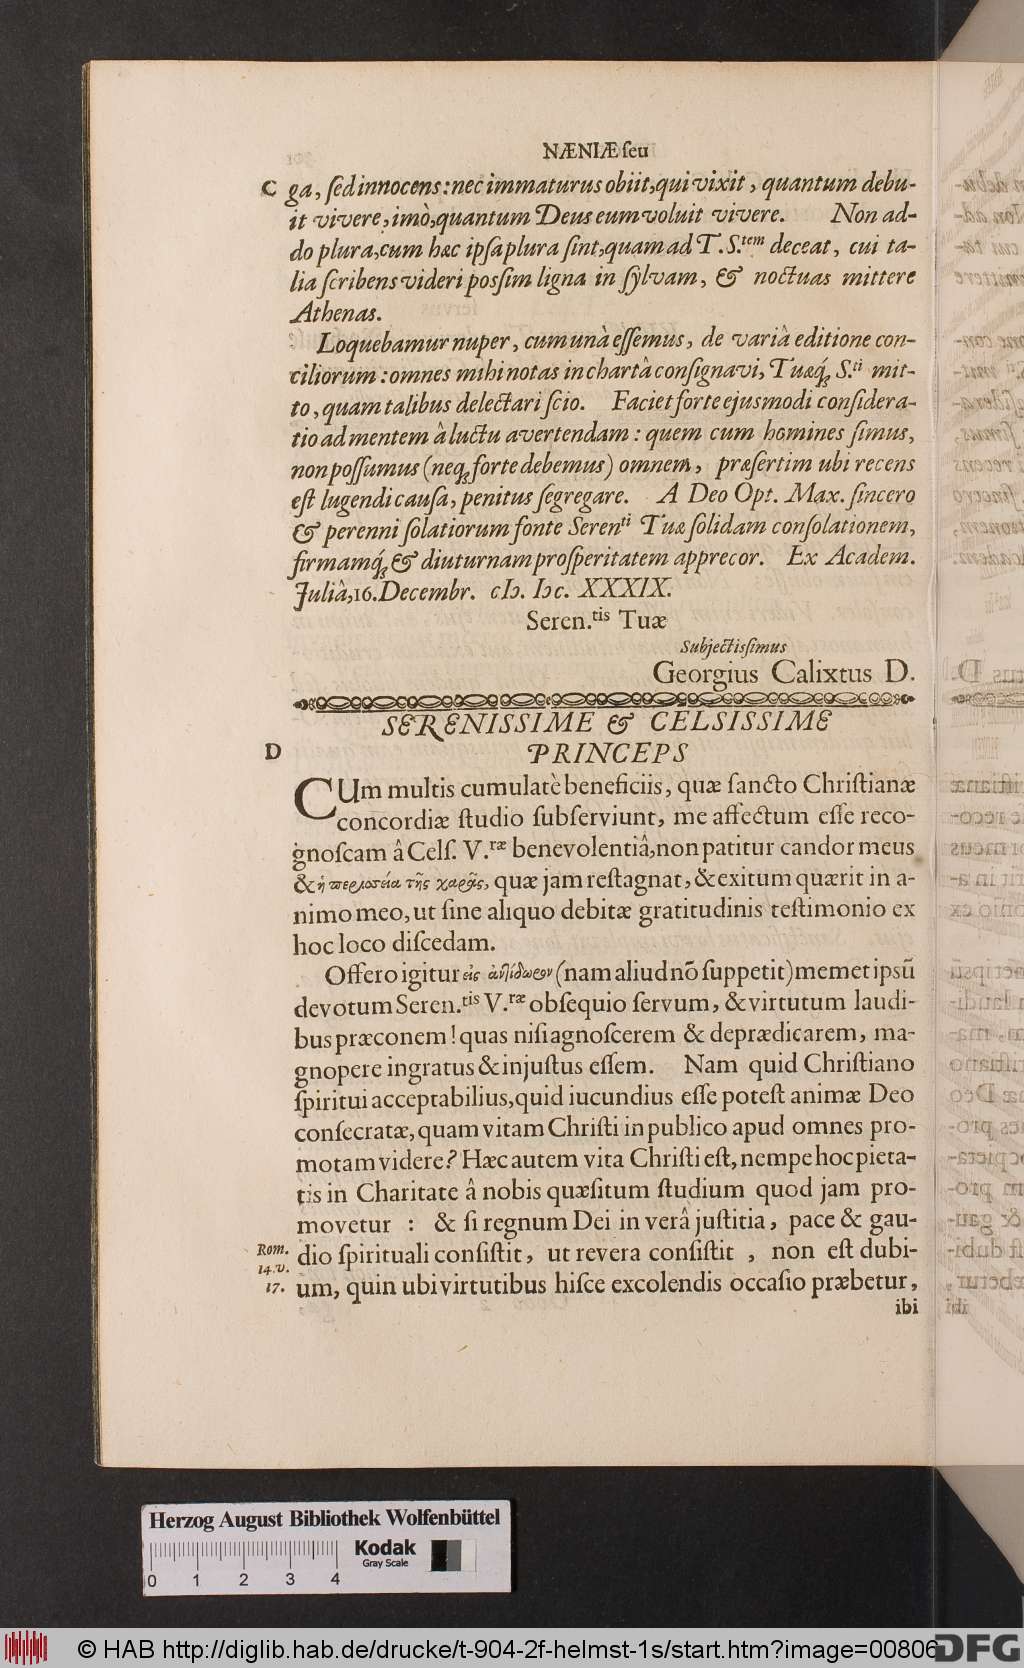 NÆNIÆ ſeu
C ga, ſed innocens: nec immaturus obiit, qui vixit, quantum debu-
it vivere, imò, quantum Deus eum voluit vivere. Non ad-
do plura, cum hæc ipſa plura ſint, quam ad T. S.tem deceat, cui ta-
lia ſcribens videri poſſim ligna in ſylvam, & noctuas mittere
Athenas.
Loquebamur nuper, cum unà eſſemus, de variâ editione con-
ciliorum: omnes mihi notas in chartâ conſignavi, Tuæq́; S.ti mit-
to, quam talibus delectari ſcio. Faciet forte ejusmodi conſidera-
tio ad mentem â luctu avertendam: quem cum homines ſimus,
non poſſumus (neq; forte debemus) omnem, præſertim ubi recens
eſt lugendi cauſa, penitus ſegregare. A Deo Opt. Max. ſincero
& perenni ſolatiorum fonte Serenti Tuæ ſolidam conſolationem,
firmamq́; & diuturnam proſperitatem apprecor. Ex Academ.
Juliâ, 16. Decembr. cIↄ. Iↄc. XXXIX.
Seren.tis Tuæ
Subjectiſſimus
Georgius Calixtus D.
SERENISSIME & CELSISSIME
D PRINCEPS
CUm multis cumulatè beneficiis, quæ ſancto Chriſtianæ
concordiæ ſtudio ſubſerviunt, me affectum eſſe reco-
gnoſcam â Celſ. V.ræ benevolentiâ, non patitur candor meus
& ἡ περισσεία τῆς χαρᾶς, quæ jam reſtagnat, & exitum quærit in a-
nimo meo, ut ſine aliquo debitæ gratitudinis teſtimonio ex
hoc loco diſcedam.
Offero igitur εἰς ἀντίδωρον (nam aliud nō ſuppetit) memet ipsū
devotum Seren.tis V.ræ obſequio ſervum, & virtutum laudi-
bus præconem! quas niſi agnoſcerem & deprædicarem, ma-
gnopere ingratus & injuſtus eſſem. Nam quid Chriſtiano
ſpiritui acceptabilius, quid iucundius eſſe poteſt animæ Deo
conſecratæ, quam vitam Chriſti in publico apud omnes pro-
motam videre? Hæc autem vita Chriſti eſt, nempe hoc pieta-
tis in Charitate â nobis quæſitum ſtudium quod jam pro-
movetur : & ſi regnum Dei in verâ juſtitia, pace & gau-
Rom. dio ſpirituali conſiſtit, ut revera conſiſtit , non eſt dubi-
14. v.
17. um, quin ubi virtutibus hiſce excolendis occaſio præbetur,
ibi
Herzog August Bibliothek Wolfenbüttel
Kodak
Gray Scale
0 1 2 3 4
© HAB http://diglib.hab.de/drucke/t-904-2f-helmst-1s/start.htm?image=00806
DFG